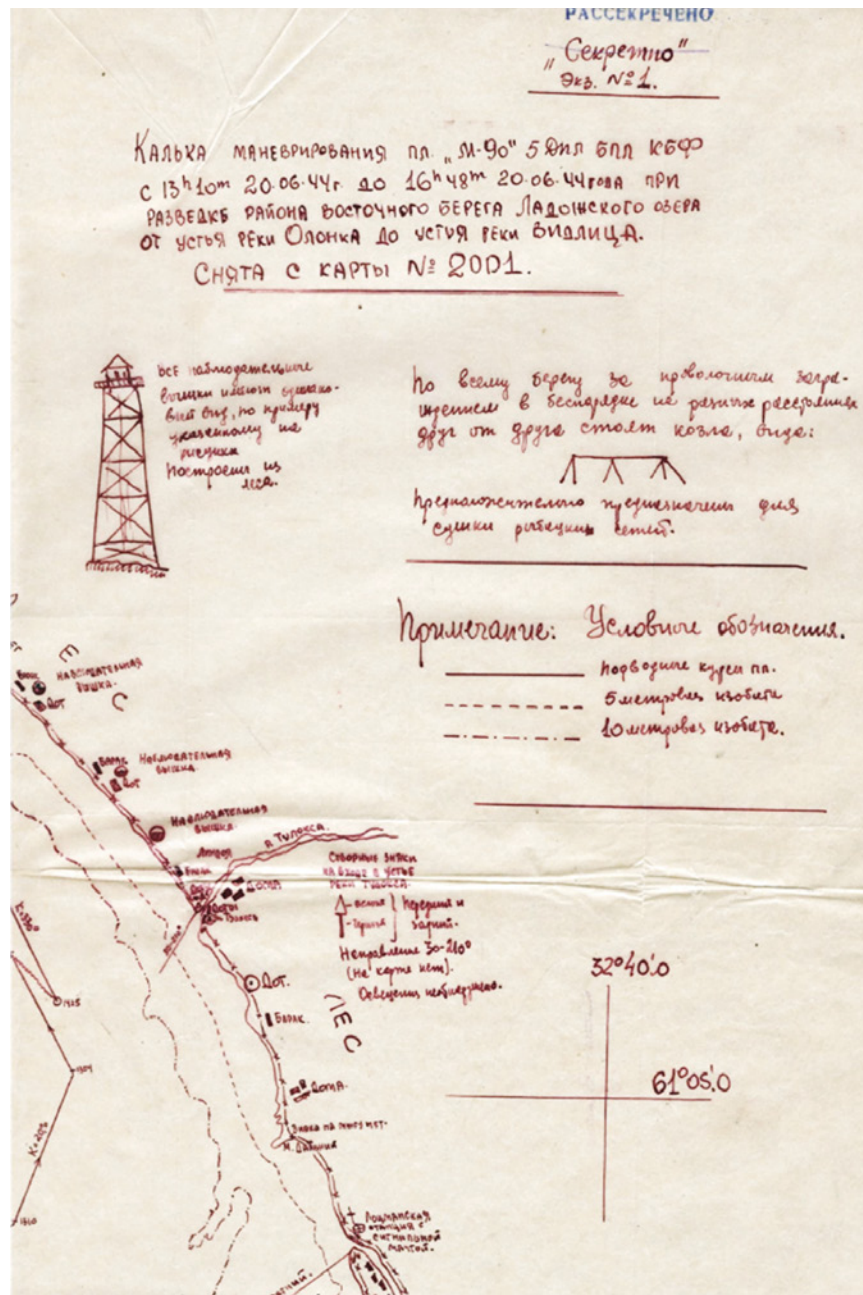 РАССЕКРЕЧЕНО
„Секретно"
Экз. №1.
Калька маневрирования пл. „М-90" 5 Дпл БПЛ КБФ
с 13ʰ10ᵐ 20.06.44г. до 16ʰ48ᵐ 20.06.44года при
разведке района восточного берега Ладожского озера
от устья реки Олонка до устья реки Видлица.
Снята с карты № 20D1.
Все наблюдательные
вышки имеют одинако-
вый вид, по примеру
указанному на
рисунке
Построены из
леса.
По всему берегу за проволочным загра-
ждением в беспорядке на разных расстояниях
друг от друга стоят козла, вида:
Предположительно предназначены для
сушки рыбацких сетей.
Примечание: Условные обозначения.
Подводные курсы пл.
5 метровая изобата
10 метровая изобата.
Е
С
Барак
Наблюдательная
вышка.
Дот
Барак
Наблюдательная
вышка.
Дот
Наблюдательная
вышка.
р. Тулокса.
Дома
Створные знаки
на входе в устье
реки Тулокса.
Передний и
задний.
Направление 30-210°
(На карте нет).
Освещения необнаружено.
Дот.
Барак.
ЛЕС
Дома.
32°40'.0
61°05'.0
1425
1404
Знака на мысу нет.
Лоцманская
станция с
сигнальной
мачтой.